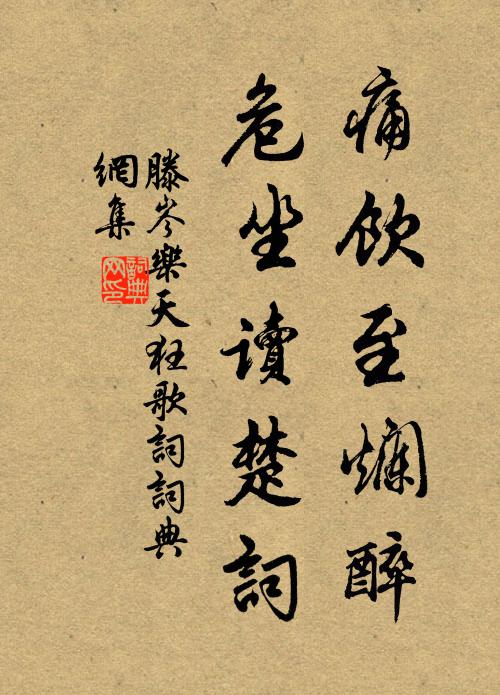 痛飲至爛醉
危坐讀楚詞
滕岑樂天狂歌詞詞典
網集
詞典
网印